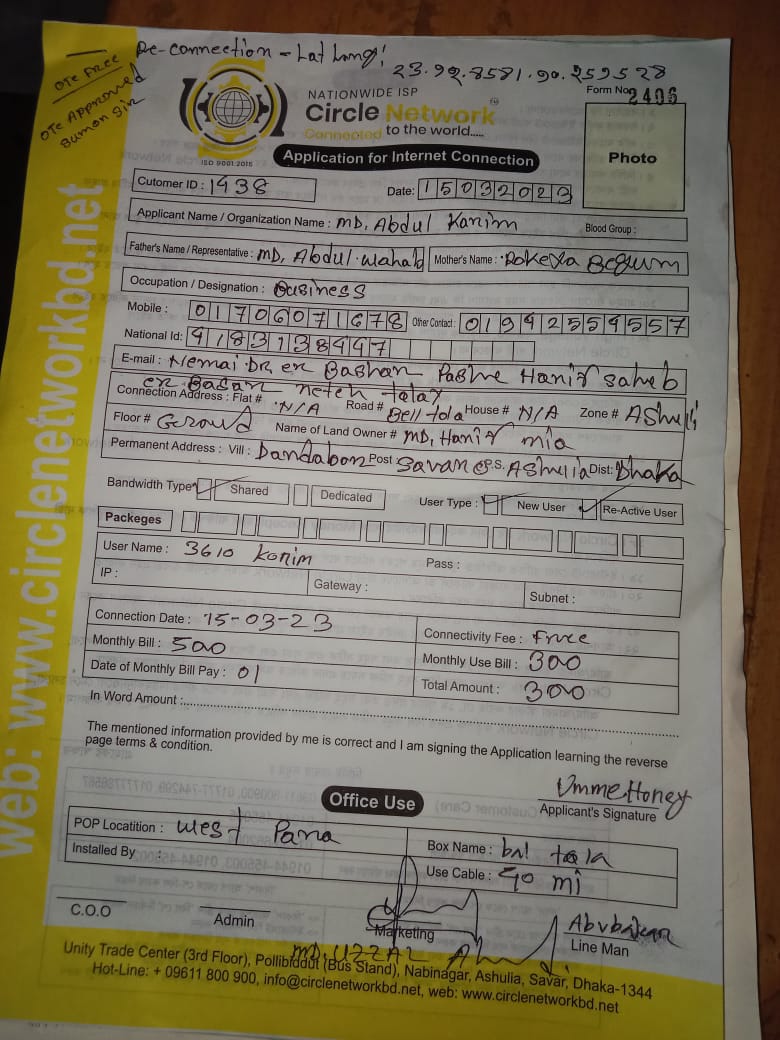 Re-connection - Lat Long:
23.92.8581.90.259528
OTC FREE
OTC APProved
Sumon Sir
NATIONWIDE ISP
Circle Network
Connected to the world.....
ISO 9001:2015
Form No. 2406
Photo
Application for Internet Connection
Cutomer ID : 1938
Date: 15032023
Applicant Name / Organization Name : MD, Abdul Karim
Blood Group :
Father's Name / Representative : MD, Abdul Wahab
Mother's Name : Rokeya Begum
Occupation / Designation : Business
Mobile : 01706071678
Other Contact : 01942559557
National Id: 9183138997
E-mail : Nemai DR, er Bashar Pashe Hanif saheb
er Basar neteh talay
Connection Address : Flat # N/A Road # Bell tola House # N/A Zone # AShuli
Floor # Geround Name of Land Owner # MD, Hanif mia
Permanent Address : Vill : Dandabor Post : Savar P.S. AShulia Dist: Dhaka
Bandwidth Type Shared Dedicated
User Type : New User Re-Active User
Packeges
User Name : 3610 Korim
Pass :
IP : Gateway : Subnet :
Connection Date : 15-03-23
Connectivity Fee : free
Monthly Bill : 500
Monthly Use Bill : 300
Date of Monthly Bill Pay : 01
Total Amount : 300
In Word Amount :
The mentioned information provided by me is correct and I am signing the Application learning the reverse
page terms & condition.
Umme Honey
Applicant's Signature
Office Use
POP Locatition : West Para
Box Name : bal tala
Installed By :
Use Cable : 90 mi
C.O.O
Admin
Marketing
Abubakar
Line Man
MD, UZZAL
Unity Trade Center (3rd Floor), Pollibiddut (Bus Stand), Nabinagar, Ashulia, Savar, Dhaka-1344
Hot-Line: + 09611 800 900, info@circlenetworkbd.net, web: www.circlenetworkbd.net
web: www.circlenetworkbd.net